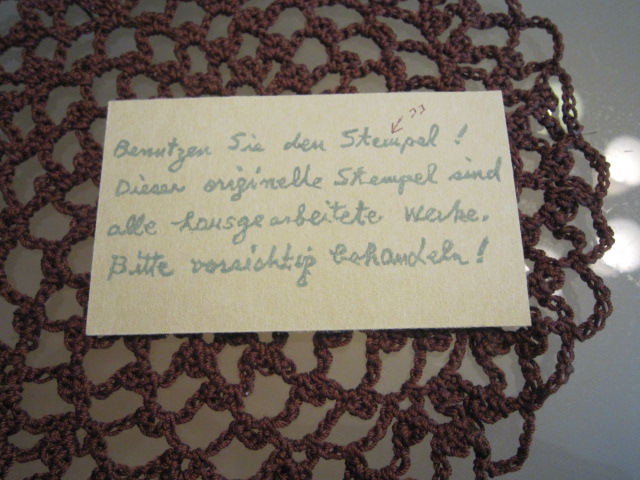 Benutzen Sie den Stempel !
Dieser originelle Stempel sind
alle hausgearbeitete Werke.
Bitte vorsichtig behandeln !